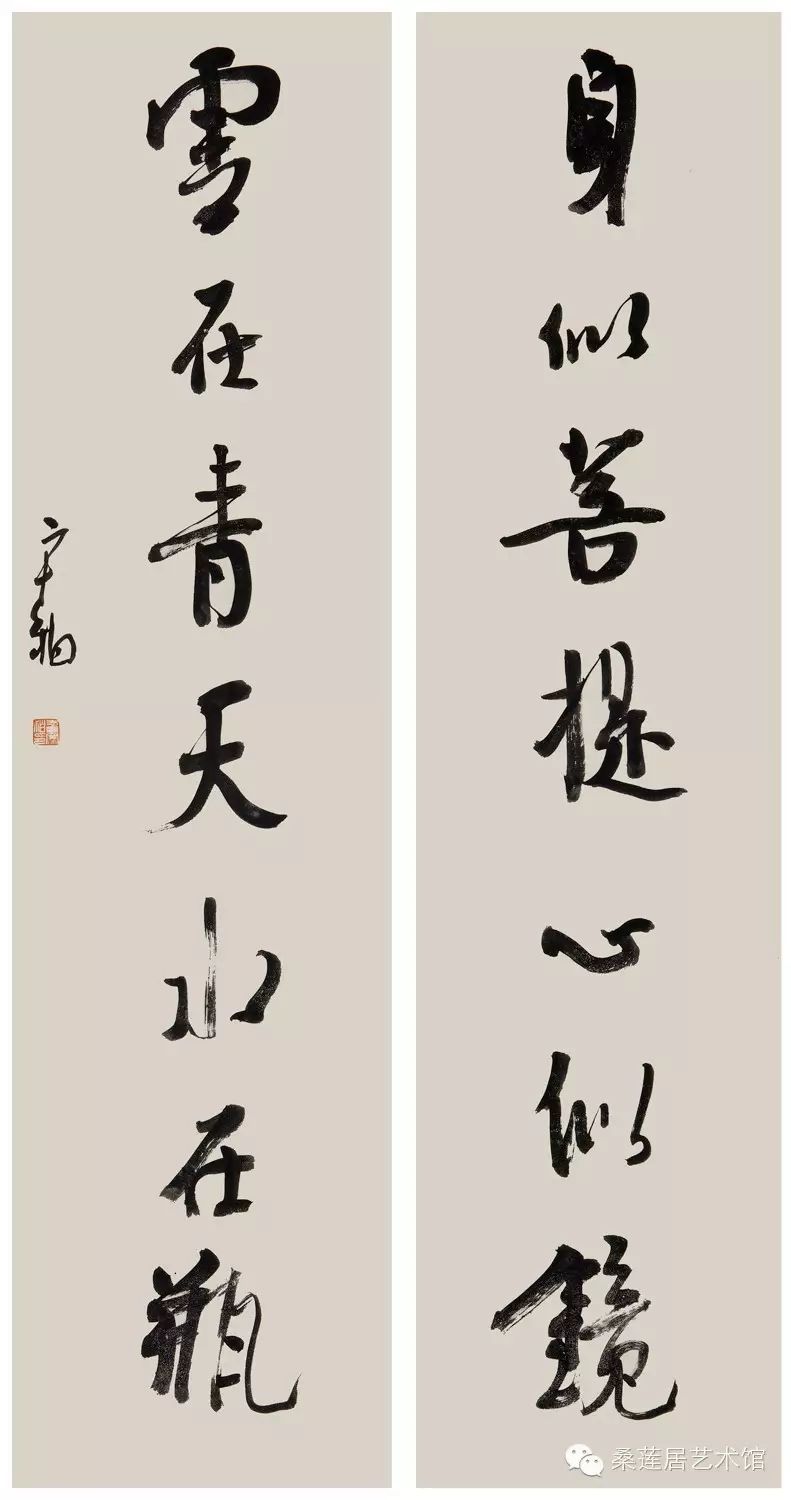 身似菩提心似鏡
雲在青天水在瓶
桑莲居艺术馆